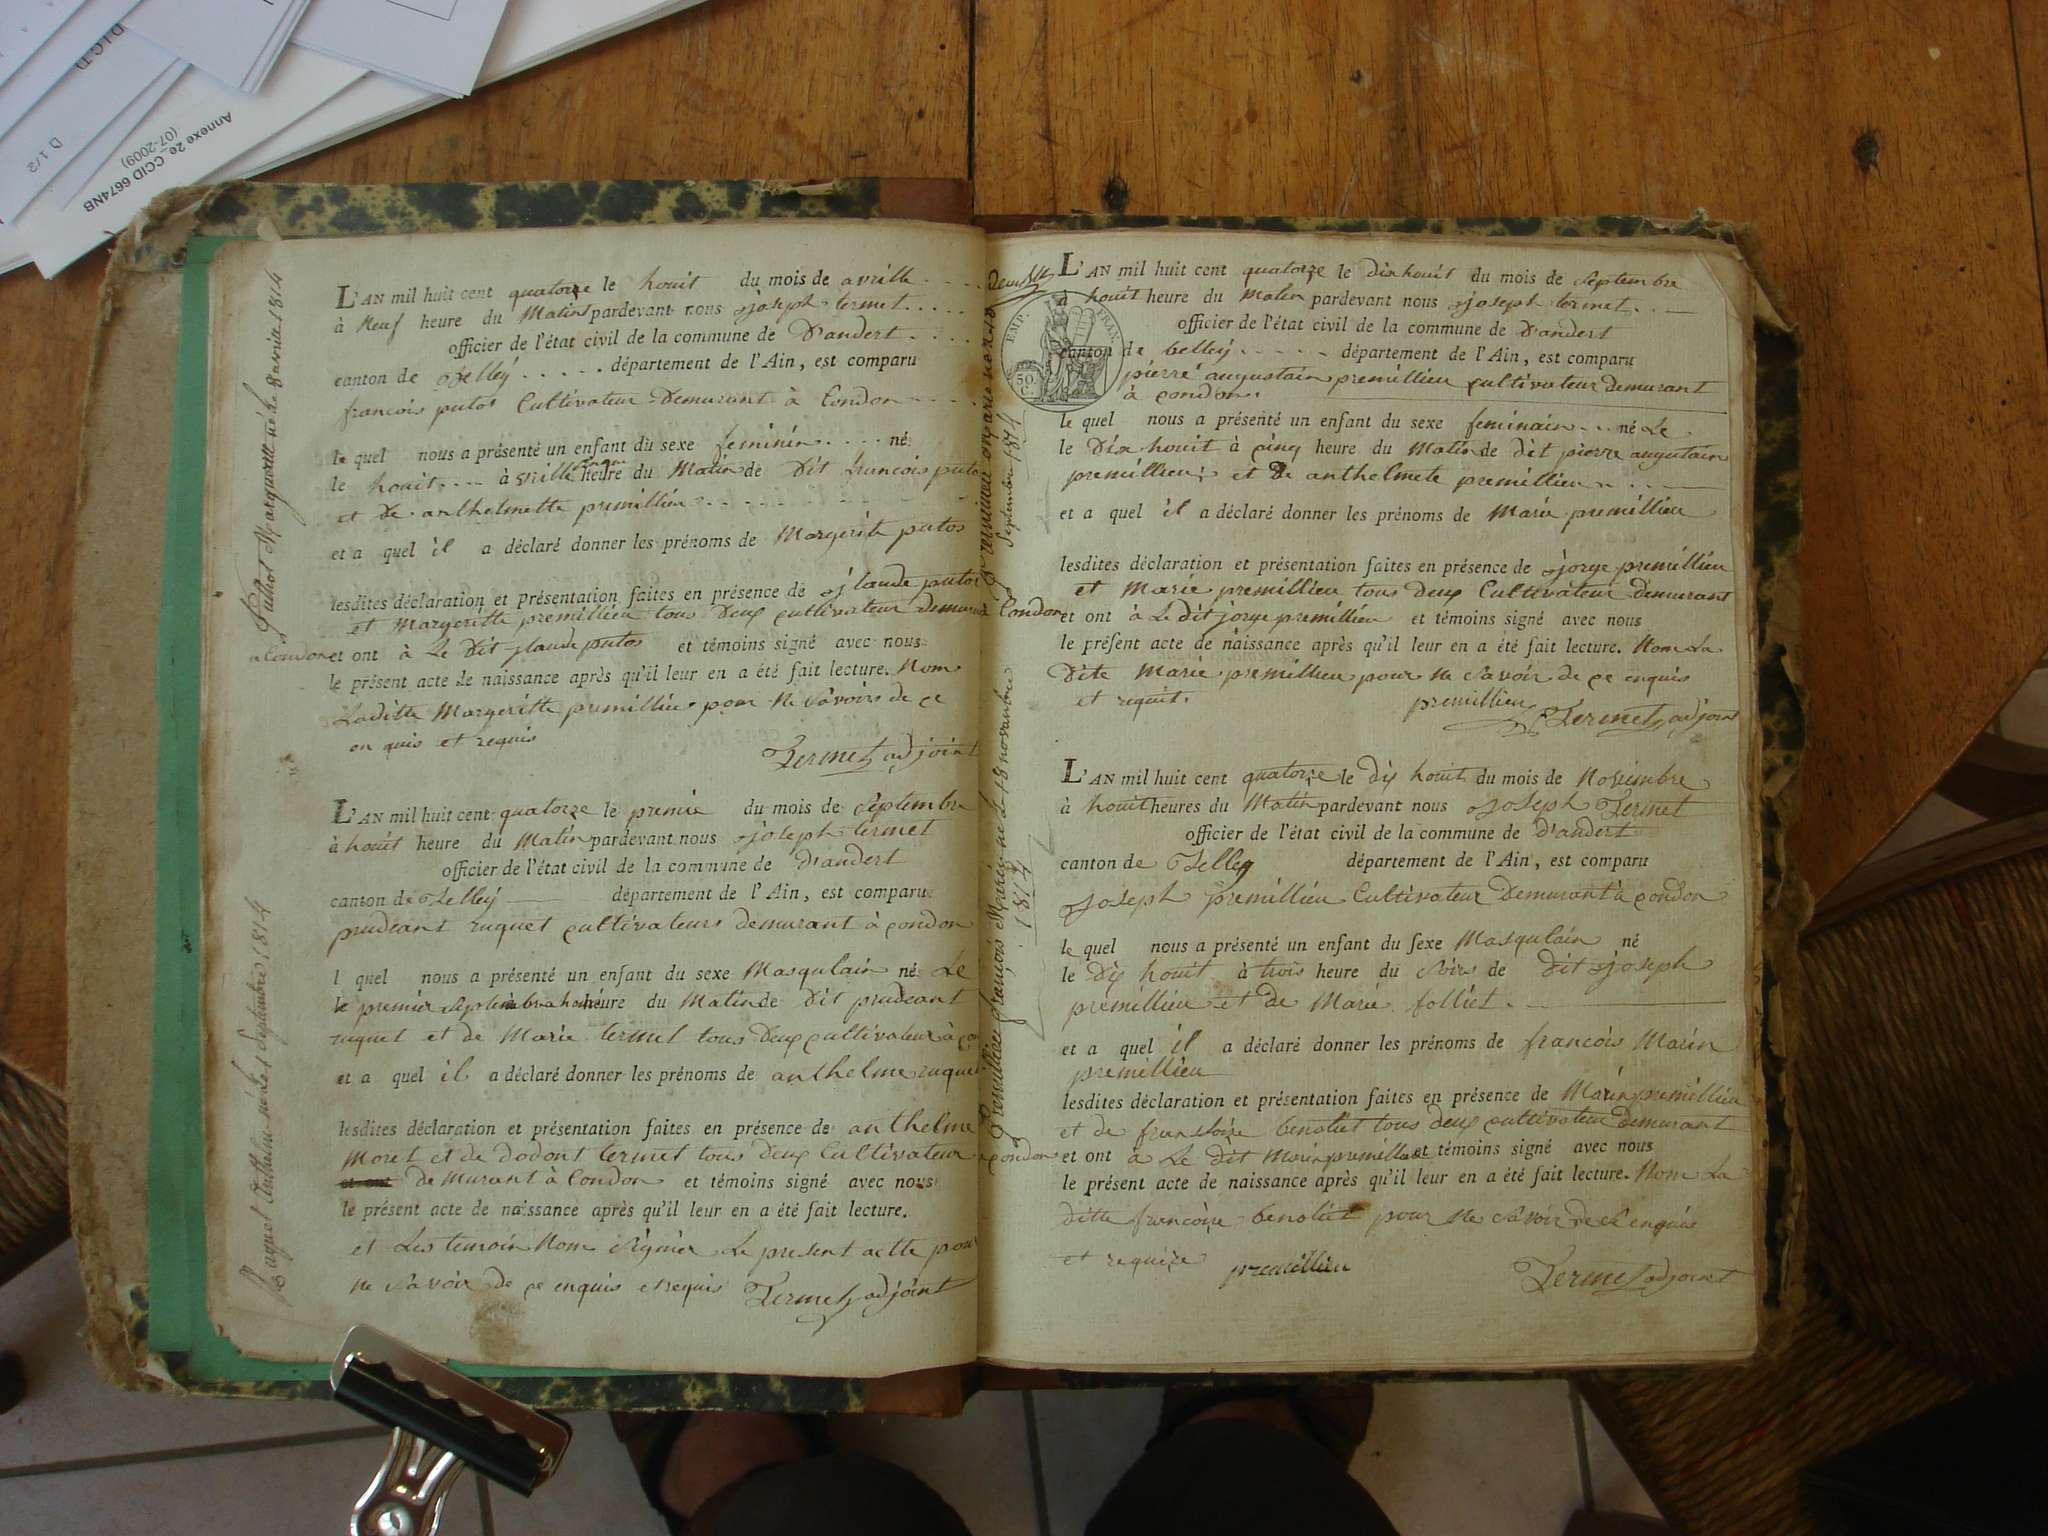 D.I.C.T
D 1/2
Annexe 2e CCID 6674NB
(07-2009)
Puthot Marguerite née le 8 avril 1814
L'AN mil huit cent quatorze le houit du mois de avrille
à neuf heure du Matins pardevant nous joseph termet
officier de l'état civil de la commune de D'andert
canton de Belley département de l'Ain, est comparu
françois putos Cultivateur Demurant à Condon
le quel nous a présenté un enfant du sexe feminin né
le houit à heure du Matin de Dit françois putos
et De anthelmette premillieu
et a quel il a déclaré donner les prénoms de Margerite putos
lesdites déclaration et présentation faites en présence de jlaude putos
et Margeritte premillieu tous Deux cultivateur demurant
a Condon et ont à Le Dit jlaude putos et témoins signé avec nous
le présent acte de naissance après qu'il leur en a été fait lecture. Nom
Laditte Margeritte premillieu pour ne Savoirs de ce
en quis et requis
Termet adjoint
Ruguet Anthelme né le 1 septembre 1814
L'AN mil huit cent quatorze le premie du mois de Septembre
à houit heure du Matin pardevant nous joseph termet
officier de l'état civil de la commune de D'andert
canton de Belley département de l'Ain, est comparu
prudeant ruguet cultivateurs demurant à condon
l quel nous a présenté un enfant du sexe Masqulain né Le
le premier Septembre a houit heure du Matin de Dit prudeant
ruguet et de Marie termet tous Deux cultivateur à
et a quel il a déclaré donner les prénoms de anthelme ruguet
lesdites déclaration et présentation faites en présence de anthelme
Moret et de Dodont termet tous Deux Cultivateur
et ont de Murant à Condon et témoins signé avec nous
le présent acte de naissance après qu'il leur en a été fait lecture.
et Les temoin Nom Signier Le present actte pour
ne Savoir de ce enquis et requis Termet adjoint
EMP. FRAN.
50 C.
septembre 1814
L'AN mil huit cent quatorze le dix houit du mois de Septembre
à houit heure du Matin pardevant nous joseph termet
officier de l'état civil de la commune de D'andert
canton de belley département de l'Ain, est comparu
pierre augustain premillieu cultivateur demurant
à condon
le quel nous a présenté un enfant du sexe feminain né Le
le Dix houit à cinq heure du Matin de Dit pierre augutain
premillieu et De anthelmete premillieu
et a quel il a déclaré donner les prénoms de Marie premillieu
lesdites déclaration et présentation faites en présence de jorge premillieu
et Marie premillieu tous Deux Cultivateur demurant
Condon et ont à Le Dit jorge premillieu et témoins signé avec nous
le présent acte de naissance après qu'il leur en a été fait lecture. Nom La
Dite Marie premillieu pour ne Savoir de ce enquis
et requit.
premillieu Termet adjoint
Premillieu françois Marin né le 18 novembre
1814
L'AN mil huit cent quatorze le dix houit du mois de Novembre
à houit heures du Matin pardevant nous joseph Termet
officier de l'état civil de la commune de D'andert
canton de Belley département de l'Ain, est comparu
joseph premillieu Cultivateur Demurant à condon
le quel nous a présenté un enfant du sexe Masqulain né
le Dix houit à trois heure du Soirs de Dit joseph
premillieu et de Marie folliet
et a quel il a déclaré donner les prénoms de françois Marin
premillieu
lesdites déclaration et présentation faites en présence de Marin premillieu
et de benoliet tous deux cultivateur demurant
a condon et ont à Le Dit Marin premillieu et témoins signé avec nous
le présent acte de naissance après qu'il leur en a été fait lecture. Nom La
ditte françoise benoliet pour ne Savoir de ce enquis
et requise premillieu
Termet adjoint